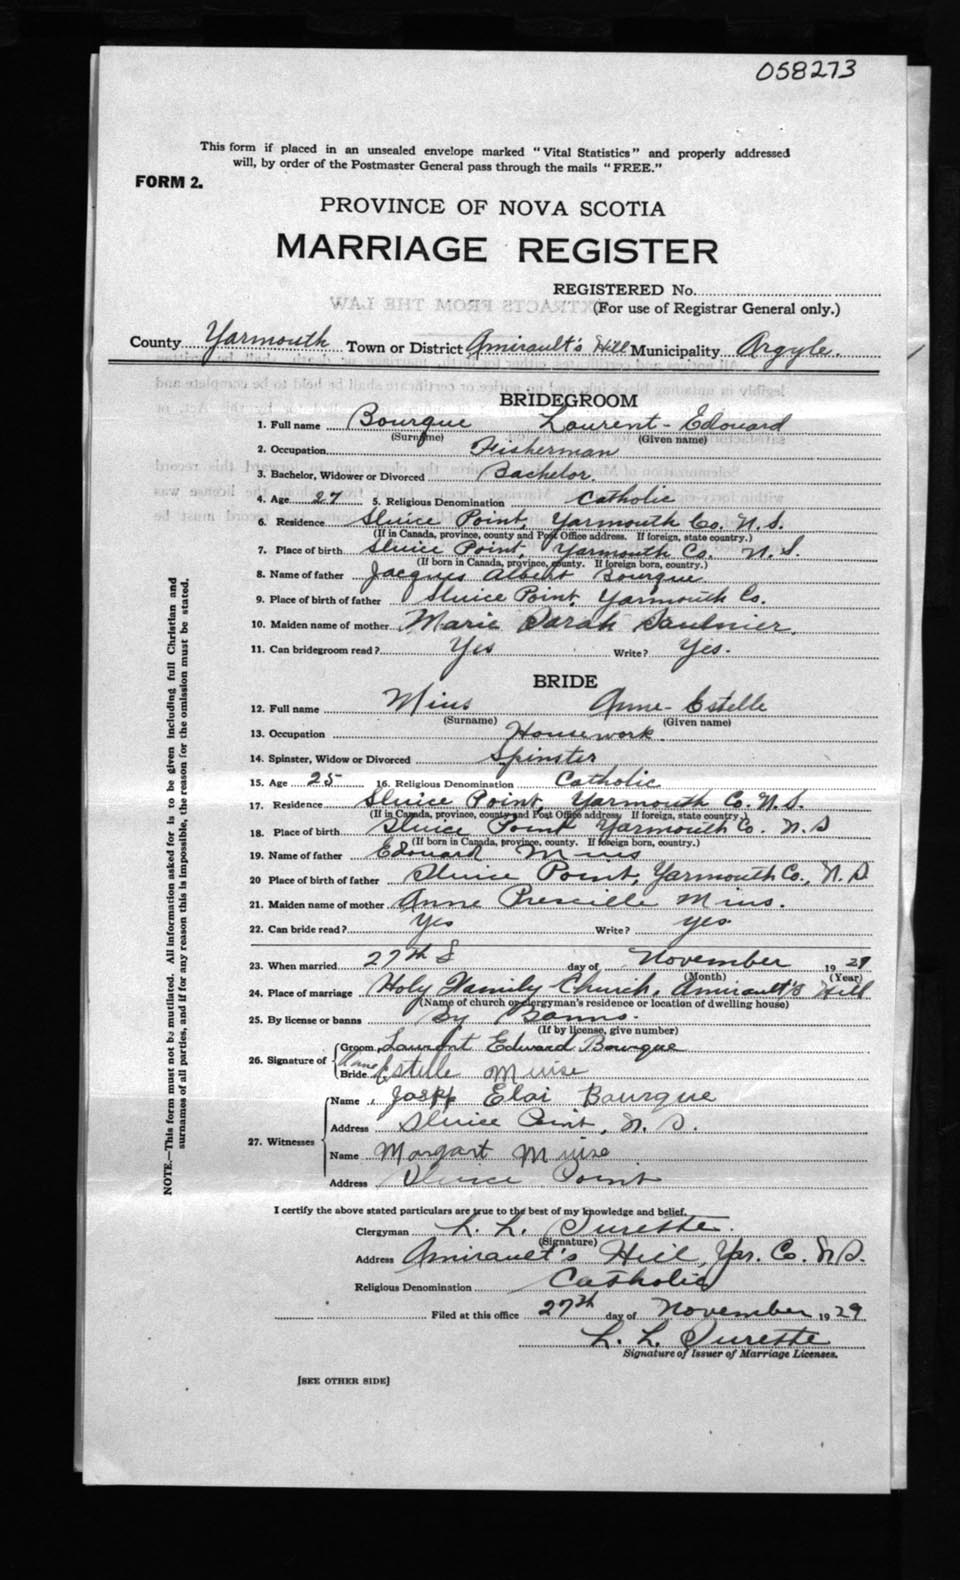 058273
This form if placed in an unsealed envelope marked "Vital Statistics" and properly addressed
will, by order of the Postmaster General pass through the mails "FREE."
FORM 2.
PROVINCE OF NOVA SCOTIA
MARRIAGE REGISTER
REGISTERED No.
(For use of Registrar General only.)
County Yarmouth Town or District Amirault's Hill Municipality Argyle.
BRIDEGROOM
1. Full name Bourque Laurent-Edouard
(Surname) (Given name)
2. Occupation Fisherman
3. Bachelor, Widower or Divorced Bachelor.
4. Age 27 5. Religious Denomination Catholic
6. Residence Sluice Point, Yarmouth Co. N.S.
(If in Canada, province, county and Post Office address. If foreign, state country.)
7. Place of birth Sluice Point, Yarmouth Co. N.S.
(If born in Canada, province, county. If foreign born, country.)
8. Name of father Jacques Albert Bourque
9. Place of birth of father Sluice Point, Yarmouth Co.
10. Maiden name of mother Marie Sarah Saulnier.
11. Can bridegroom read? Yes Write? Yes.
BRIDE
12. Full name Mius Anne-Estelle
(Surname) (Given name)
13. Occupation Housework
14. Spinster, Widow or Divorced Spinster
15. Age 25 16. Religious Denomination Catholic
17. Residence Sluice Point, Yarmouth Co. N.S.
(If in Canada, province, county and Post Office address. If foreign, state country.)
18. Place of birth Sluice Point Yarmouth Co. N.S
(If born in Canada, province, county. If foreign born, country.)
19. Name of father Edouard Mius
20 Place of birth of father Sluice Point, Yarmouth Co., N.S
21. Maiden name of mother Anne Prescille Mius.
22. Can bride read? Yes Write? yes
23. When married 27th day of November 1929
(Month) (Year)
24. Place of marriage Holy Family Church, Amirault's Hill
(Name of church or clergyman's residence or location of dwelling house)
25. By license or banns By Banns.
(If by license, give number)
26. Signature of
Groom Laurent Edward Bourque
Bride Anne Estelle Muise
27. Witnesses
Name Joseph Eloi Bourque
Address Sluice Point, N.S.
Name Margart Muise
Address Sluice Point
I certify the above stated particulars are true to the best of my knowledge and belief.
Clergyman L. L. Surette.
(Signature)
Address Amirault's Hill, Yar. Co. N.S.
Religious Denomination Catholic
Filed at this office 27th day of November 1929
L. L. Surette
Signature of Issuer of Marriage Licenses.
[SEE OTHER SIDE]
NOTE.—This form must not be mutilated. All information asked for is to be given including full Christian and
surnames of all parties, and if for any reason this is impossible, the reason for the omission must be stated.